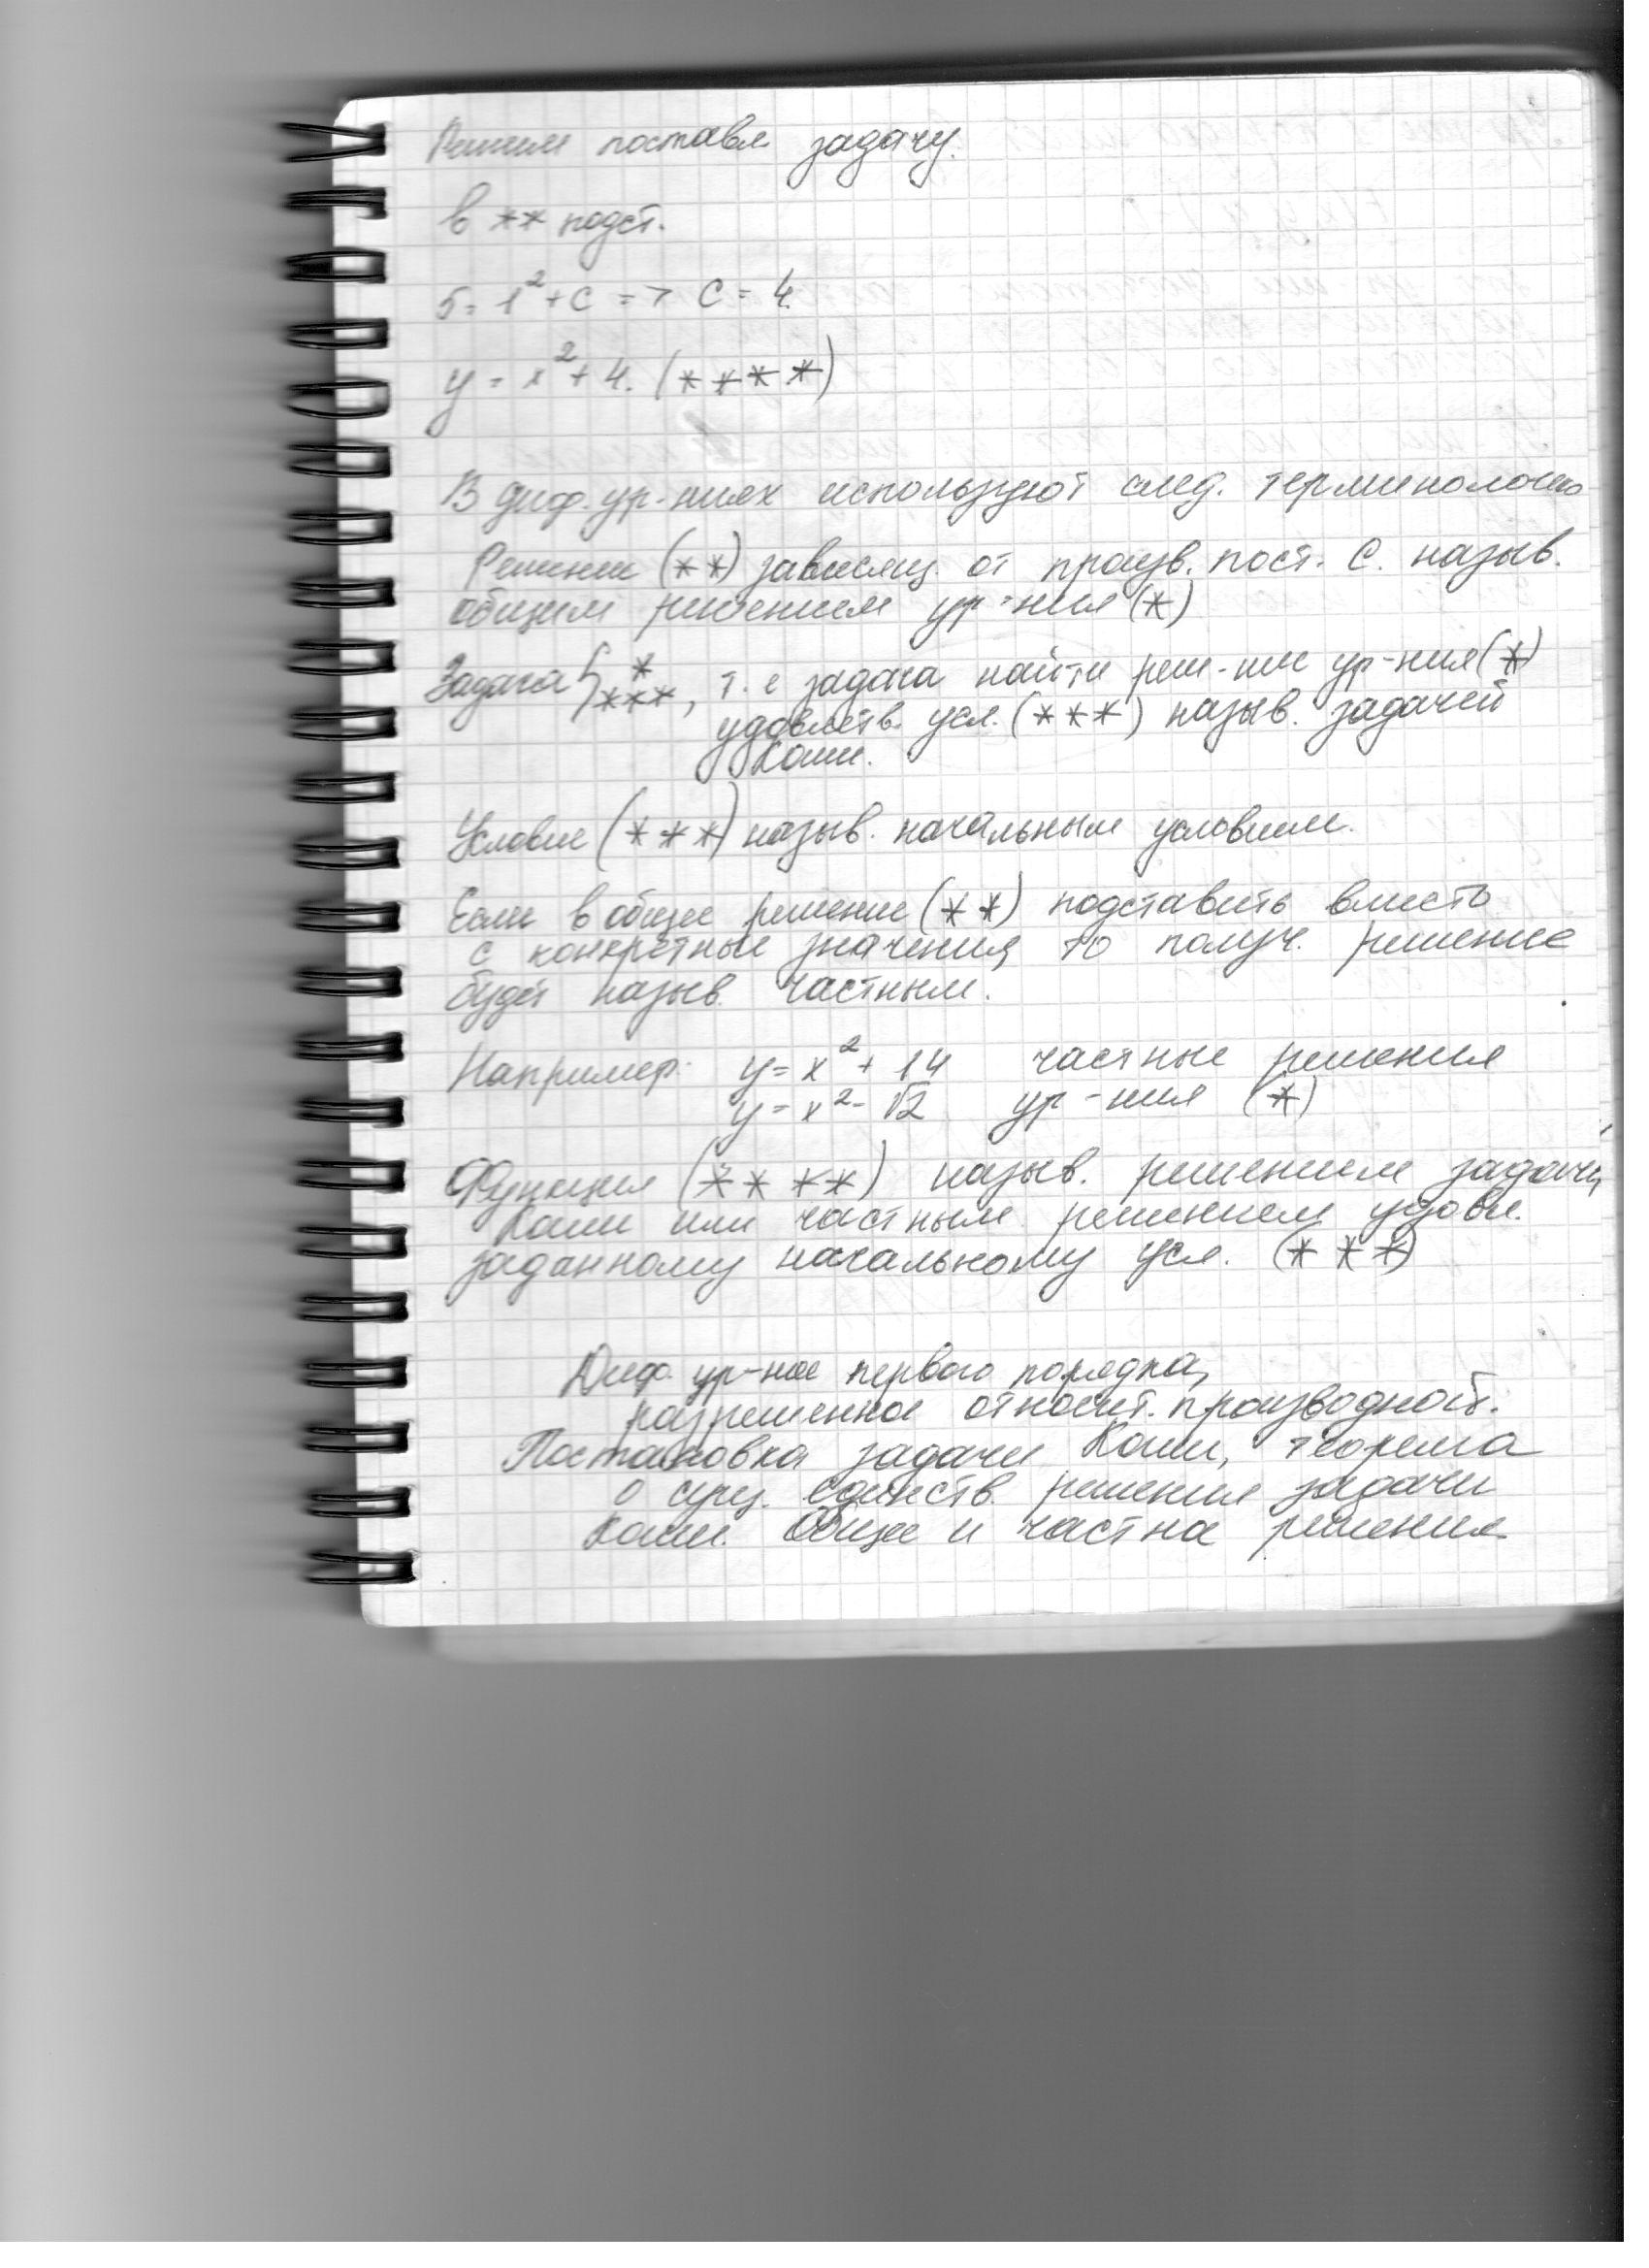 Решим поставл задачу.
в ** подст.
5 = 1² + C => C = 4.
y = x² + 4. (****)
В диф. ур-ниях используют след. терминологию
Решение (**) зависящ. от произв. пост. С. назыв.
общим решением ур-ния (*)
Задача { *
***, т.е задача найти реш-ние ур-ния (*)
удовлетв. усл. (***) назыв. задачей
Коши.
Условие (***) назыв. начальным условием.
Если в общее решение (**) подставить вместо
с конкретные значения, то получ. решение
будет назыв. частным.
Например: y = x² + 14 частные решения
y = x² - √2 ур-ния (*)
Функция (****) назыв. решением задачи
Коши или частным решением удовл.
заданному начальному усл. (***)
Диф. ур-ное первого порядка,
разрешенное относит. производной.
Постановка задачи Коши, теорема
о сущ. единств. решения задачи
Коши. Общее и частна решения